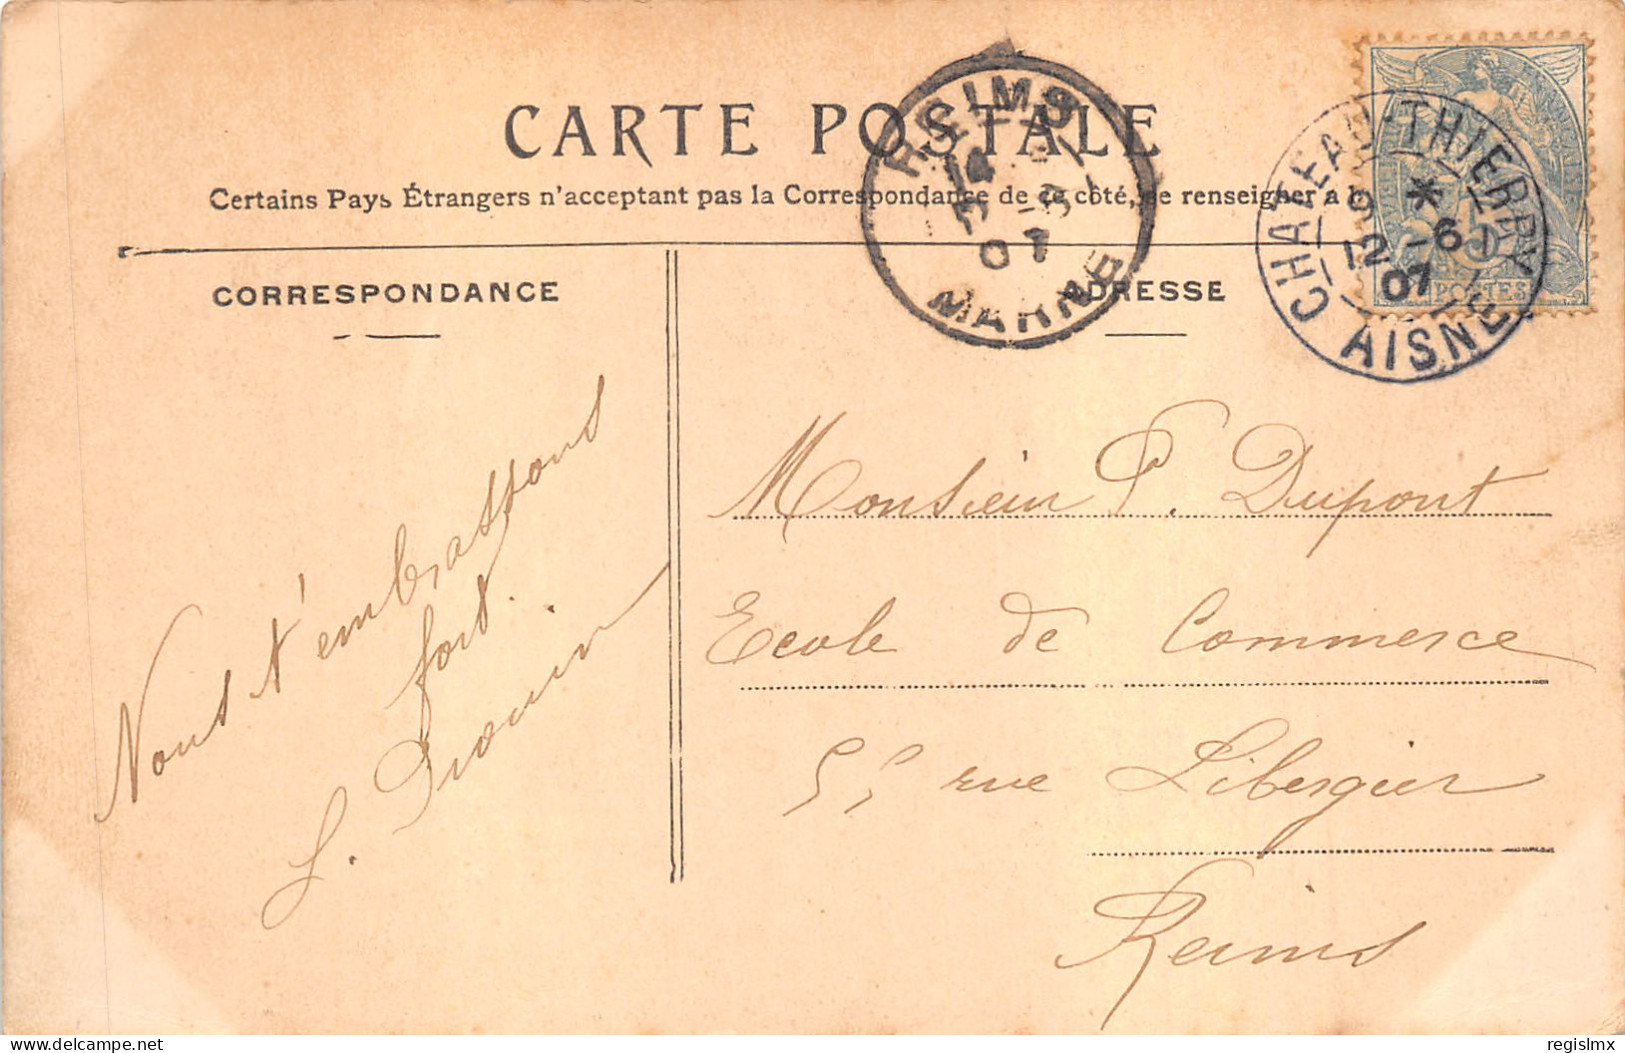 CARTE POSTALE
Certains Pays Étrangers n'acceptant pas la Correspondance de ce côté, se renseigner a la
CORRESPONDANCE
ADRESSE
REIMS
MARNE
07
CHATEAU-THIERRY
9 *
12 -6
07
AISNE
POSTES
Nous t'embrassons
fort.
L.
Monsieur P. Dupont
Ecole de Commerce
rue Libergier
Reims
delcampe.net
regislmx